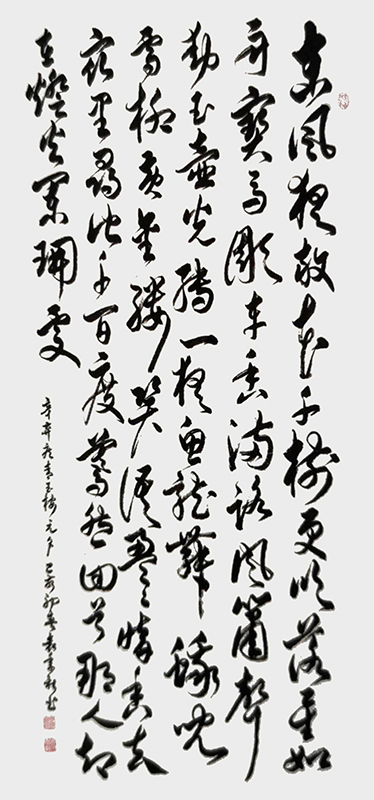 東風夜放花千樹更吹落星如
雨寶馬雕車香滿路鳳簫聲
動玉壺光轉一夜魚龍舞蛾兒
雪柳黃金縷笑語盈盈暗香去
衆里尋他千百度驀然回首那人却
在燈火闌珊處
辛弃疾青玉案元夕 己亥初春